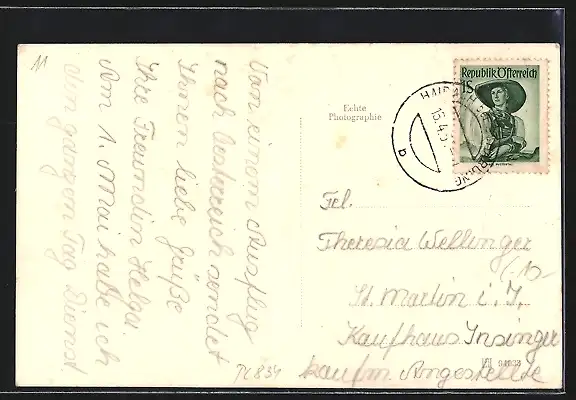 11
Von einem Ausflug
nach Oesterreich sendet
Ihnen liebe Grüße
Ihre Freundin Helga.
Am 1. Mai habe ich
den ganzen Tag Dienst.
Echte
Photographie
Republik Österreich
1S
a
Frl.
Theresia Wellinger
St. Martin i. J.
Kaufhaus Insinger
kaufm. Angestellte
PL834